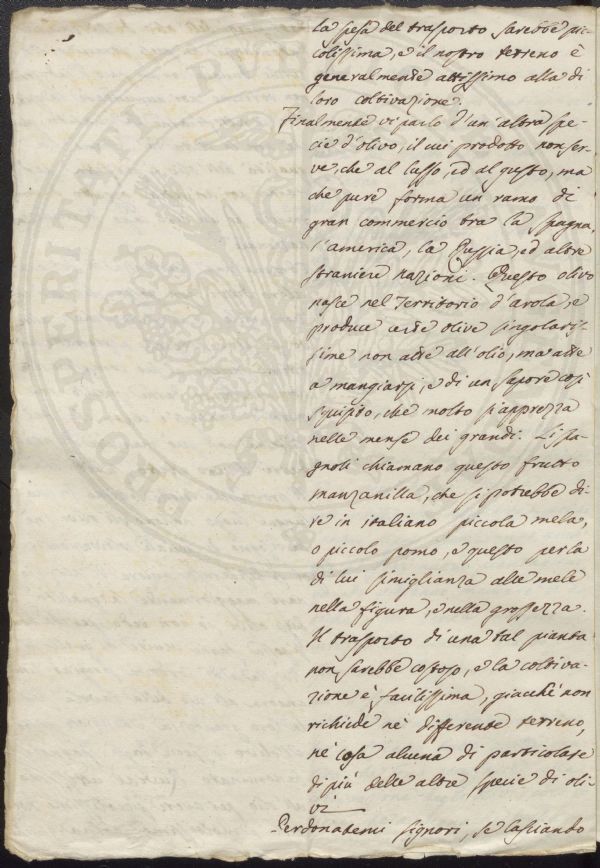 la spesa del trasporto sarebbe pic-
colissima, e il nostro terreno è
generalmente attissimo alla di
loro coltivazione.
Finalmente vi parlo d'un'altra spe-
cie d'olivo, il cui prodotto non ser-
ve, che al lusso, ed al gusto, ma
che pure forma un ramo di
gran commercio tra la Spagna,
l'america, la Russia, ed altre
straniere nazioni. Questo olivo
nasce nel Territorio d'arola, e
produce certe olive singolaris-
sime non atte all'olio, ma atte
a mangiarsi, e di un sapore così
squisito, che molto s'apprezza
nelle mense dei grandi. Li spa-
gnoli chiamano questo frutto
manzanilla, che si potrebbe di-
re in italiano piccola mela,
o piccolo pomo, e questo per la
di lui simiglianza alle mele
nella figura, e nella grossezza.
Il trasporto di una tal pianta
non sarebbe costoso, e la coltiva-
zione è facilissima, giacchè non
richiede nè differente terreno,
nè cosa alcuna di particolare
di più delle altre specie di oli-
vi
Perdonatemi signori, se lasciando
PROSPERITATI PUB